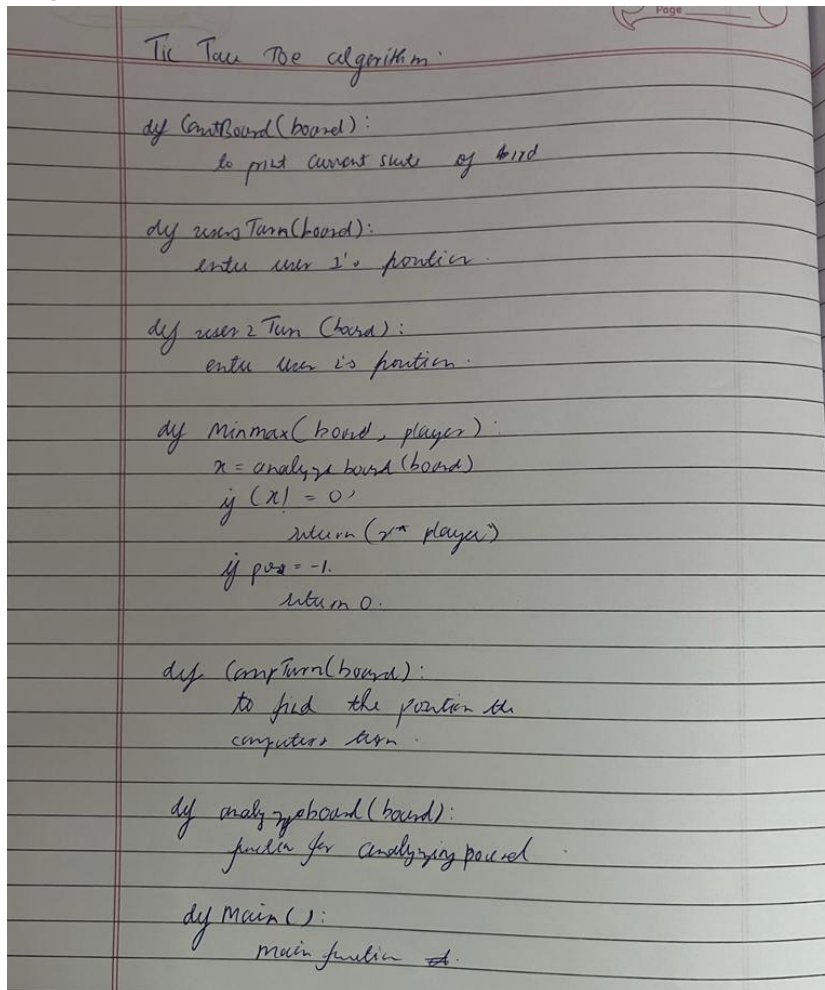 Page
Tic Tac Toe algorithm.
def ConstBoard(board):
to print current state of bird
def user1Turn(board):
enter user 1's position.
def user2Turn (board):
enter user 2's position.
def Minmax(board, player):
x = analyze board (board)
if (x! = 0)
return (x* player)
if pos = -1.
return 0.
def CompTurn(board):
to find the position the
computers turn.
def analyzeboard(board):
function for analyzing board.
def Main():
main function